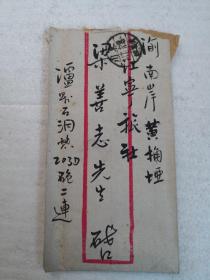 渝南岸黄桷垭
江寧旅社
梁善志先生
瀘縣石洞
2030
砲二連